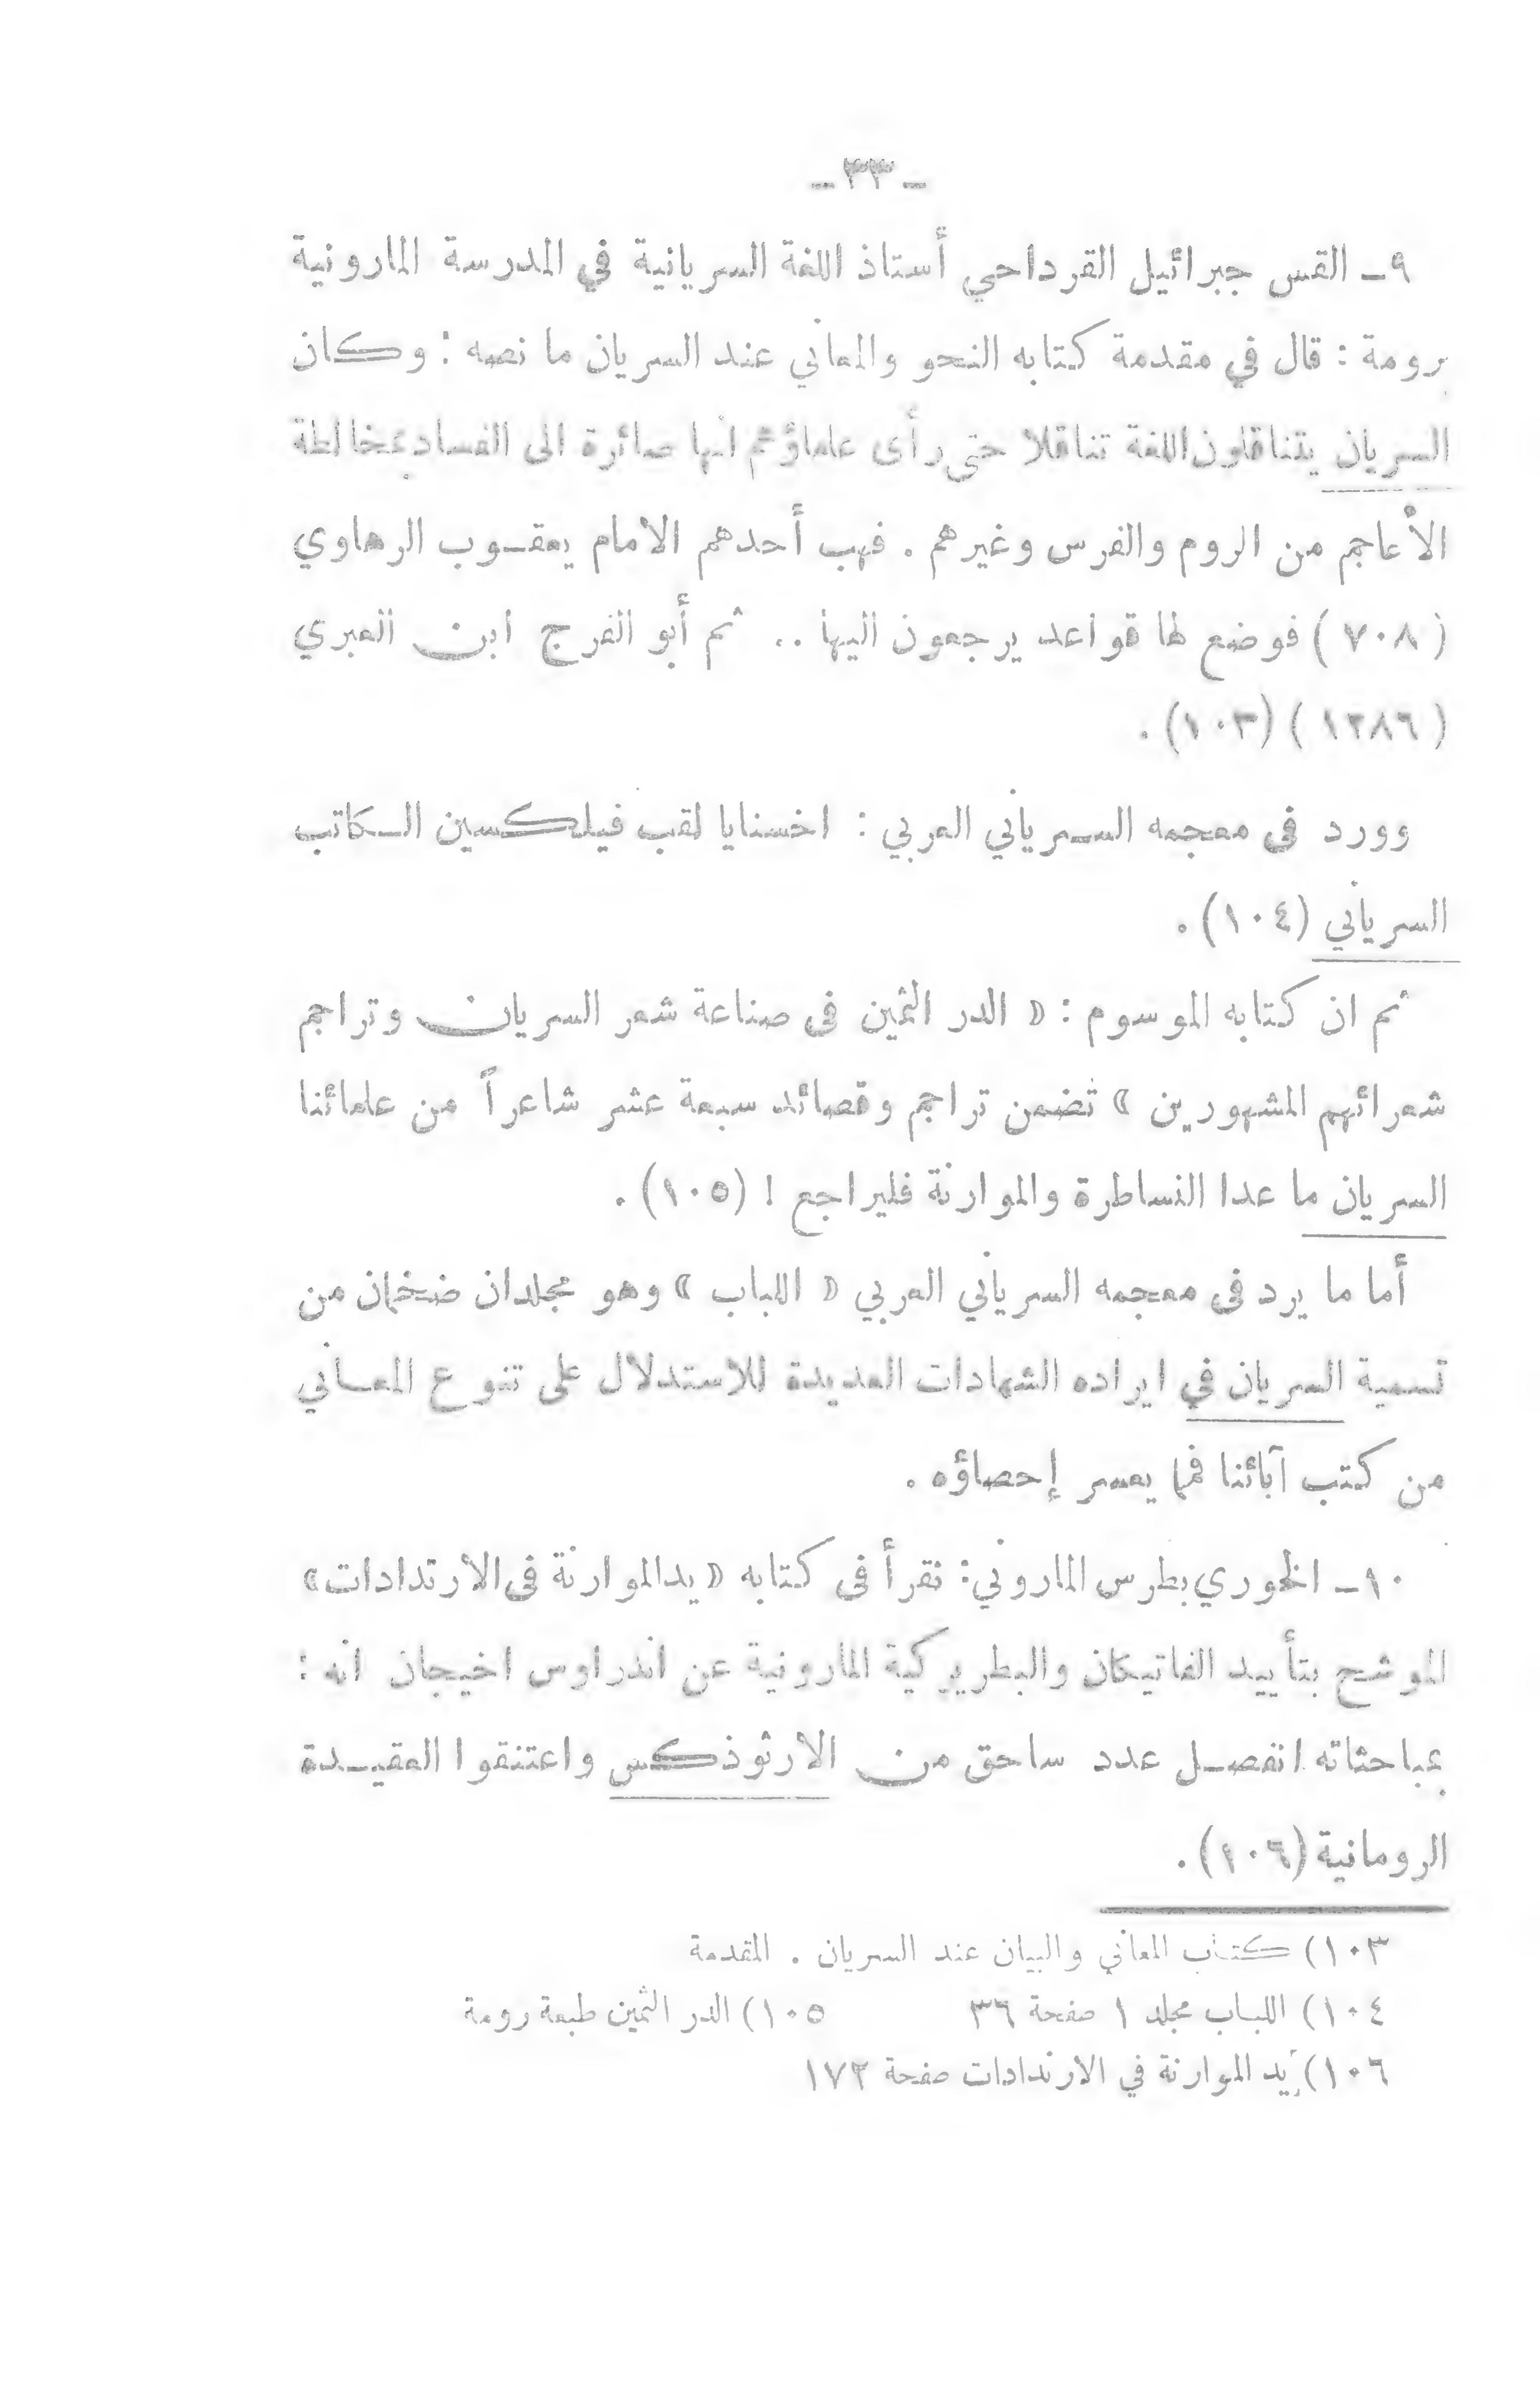 ـ ٣٣ ـ
٩ـ القس جبرائيل القرداحي أستاذ اللغة السريانية في المدرسة المارونية
برومة : قال في مقدمة كتابه النحو والمعاني عند السريان ما نصه : وكان
السريان يتناقلون اللغة تناقلا حتى رأى علماؤهم انها صائرة الى الفساد بمخالطة
الأعاجم من الروم والفرس وغيرهم . فهب أحدهم الامام يعقـوب الرهاوي
( ٧٠٨ ) فوضع لها قواعد يرجعون اليها .. ثم أبو الفرج ابن العبري
( ١٢٨٦ ) (١٠٣) .
وورد فى معجمه السـرياني العربي : اخسنايا لقب فيلكسين الـكاتب
السرياني (١٠٤) .
ثم ان كتابه الموسوم : « الدر الثمين فى صناعة شعر السريان وتراجم
شعرائهم المشهورين » تضمن تراجم وقصائد سبعة عشر شاعراً من علمائنا
السريان ما عدا النساطرة والموارنة فليراجع ! (١٠٥) .
أما ما يرد فى معجمه السرياني العربي « اللباب » وهو مجلدان ضخمان من
تسمية السريان في ايراده الشهادات العديدة للاستدلال على تنوع المعـاني
من كتب آبائنا فمما يعسر إحصاؤه .
١٠ـ الخوري بطرس الماروني: نقرأ فى كتابه «يد الموارنة فى الارتدادات»
الموشح بتأييد الفاتيكان والبطريركية المارونية عن اندراوس اخيجان انه :
بمباحثاته انفصـل عدد ساحق من الارثوذكس واعتنقوا العقيـدة
الرومانية (١٠٦) .
١٠٣) كتاب المعاني والبيان عند السريان . المقدمة
١٠٤) اللباب مجلد ١ صفحة ٣٦ ١٠٥) الدر الثمين طبعة رومة
١٠٦) يد الموارنة في الارتدادات صفحة ١٧٢